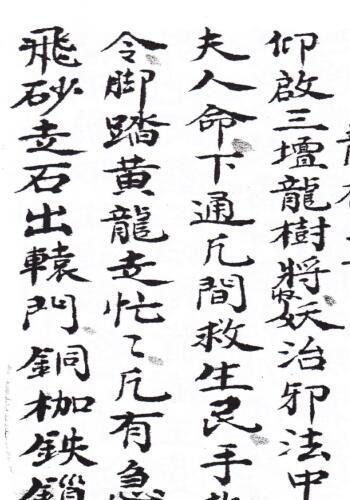 仰啟三壇龍樹將收妖治邪法中
夫人命下通凢間救生民手
令脚踏黄龍走忙〻凢有急
飛砂走石出轅門銅枷鉄鎖